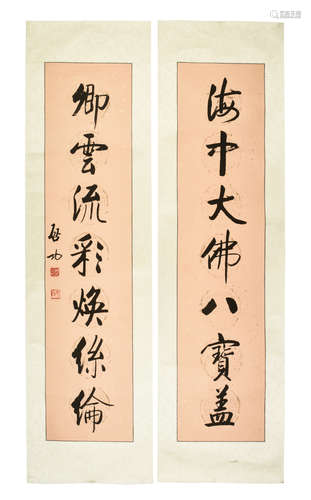 海中大佛八寶蓋
卿雲流彩焕絲綸
啟功